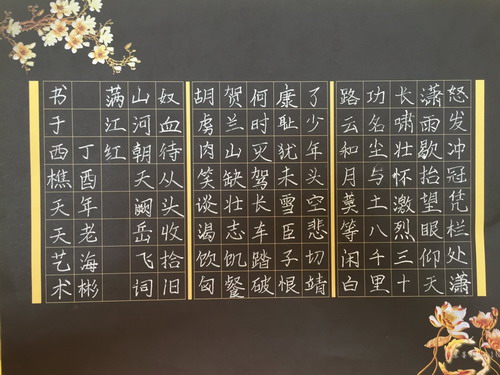 怒发冲冠凭栏处潇
潇雨歇抬望眼仰天
长啸壮怀激烈三十
功名尘与土八千里
路云和月莫等闲白
了少年头空悲切靖
康耻犹未雪臣子恨
何时灭驾长车踏破
贺兰山缺壮志饥餐
胡虏肉笑谈渴饮匈
奴血待从头收拾旧
山河朝天阙岳飞词
满江红
丁酉年老海彬
书于西樵天天艺术